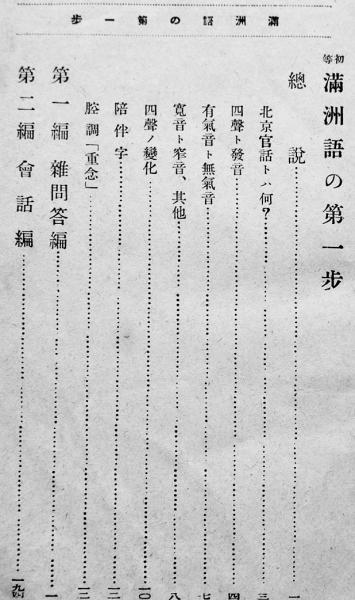 滿洲語の第一步
初等 滿洲語の第一步
總說 一
北京官話トハ何? 三
四聲ト發音 四
有氣音ト無氣音 七
寬音ト窄音、其他 八
四聲ノ變化 一〇
陪伴字 一二
腔調「重念」 一二
第一編 雜問答編 一
第二編 會話編